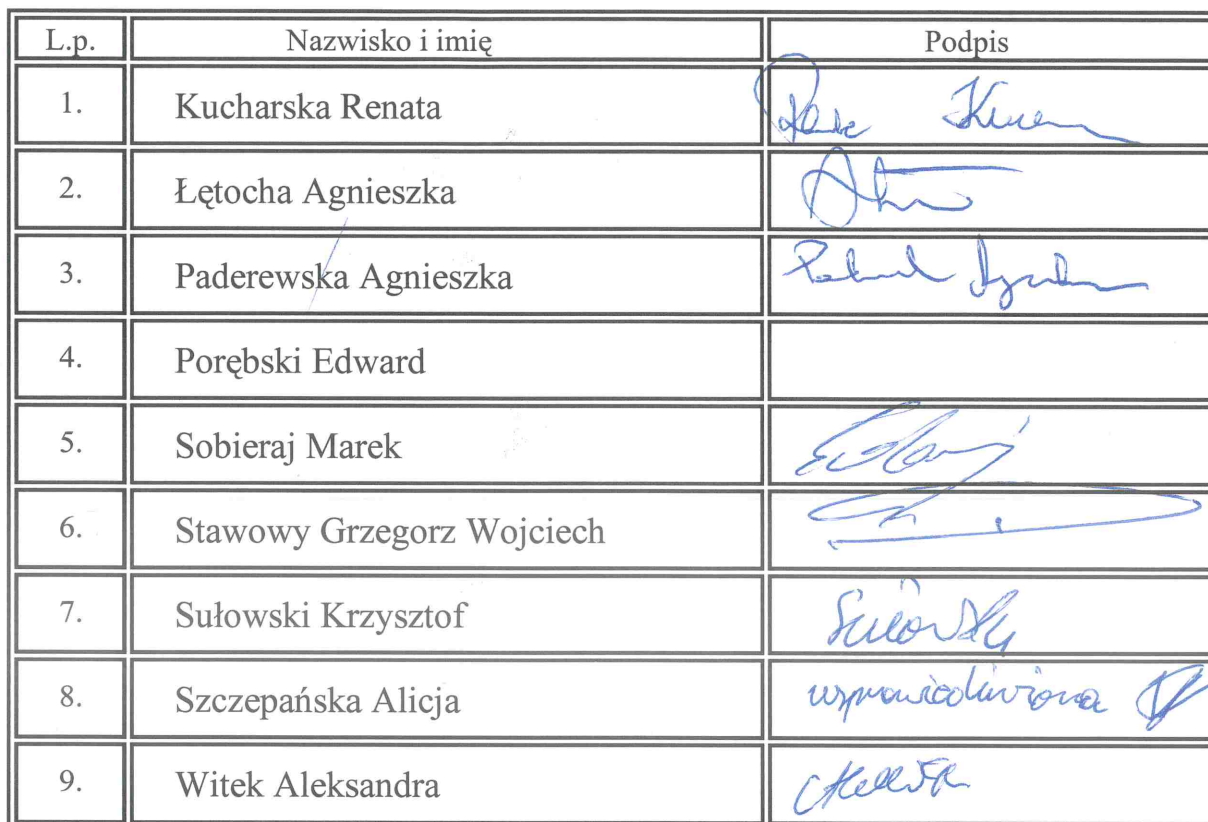 L.p. Nazwisko i imię Podpis
1. Kucharska Renata
2. Łętocha Agnieszka
3. Paderewska Agnieszka
4. Porębski Edward
5. Sobieraj Marek
6. Stawowy Grzegorz Wojciech
7. Sułowski Krzysztof Sułowski
8. Szczepańska Alicja usprawiedliwiona
9. Witek Aleksandra